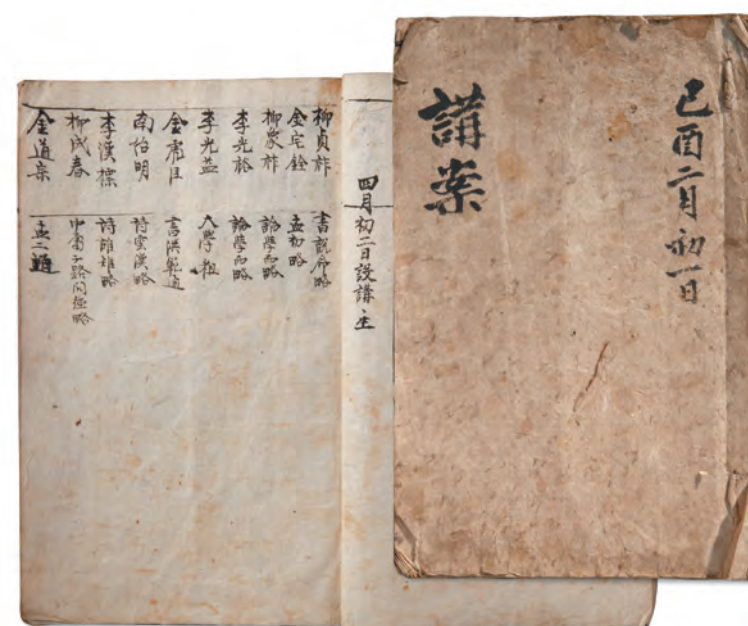 己酉二月初一日
講案
四月初二日設講 生
柳貞祚 書說命略
金宅銓 孟初略
柳象祚 論學而略
李光裕 論學而略
李光益 大學粗
金 書洪範通
南伯明 詩雲漢略
李漢標 詩雉略
柳成春 中庸子路問强略
金道 孟二通